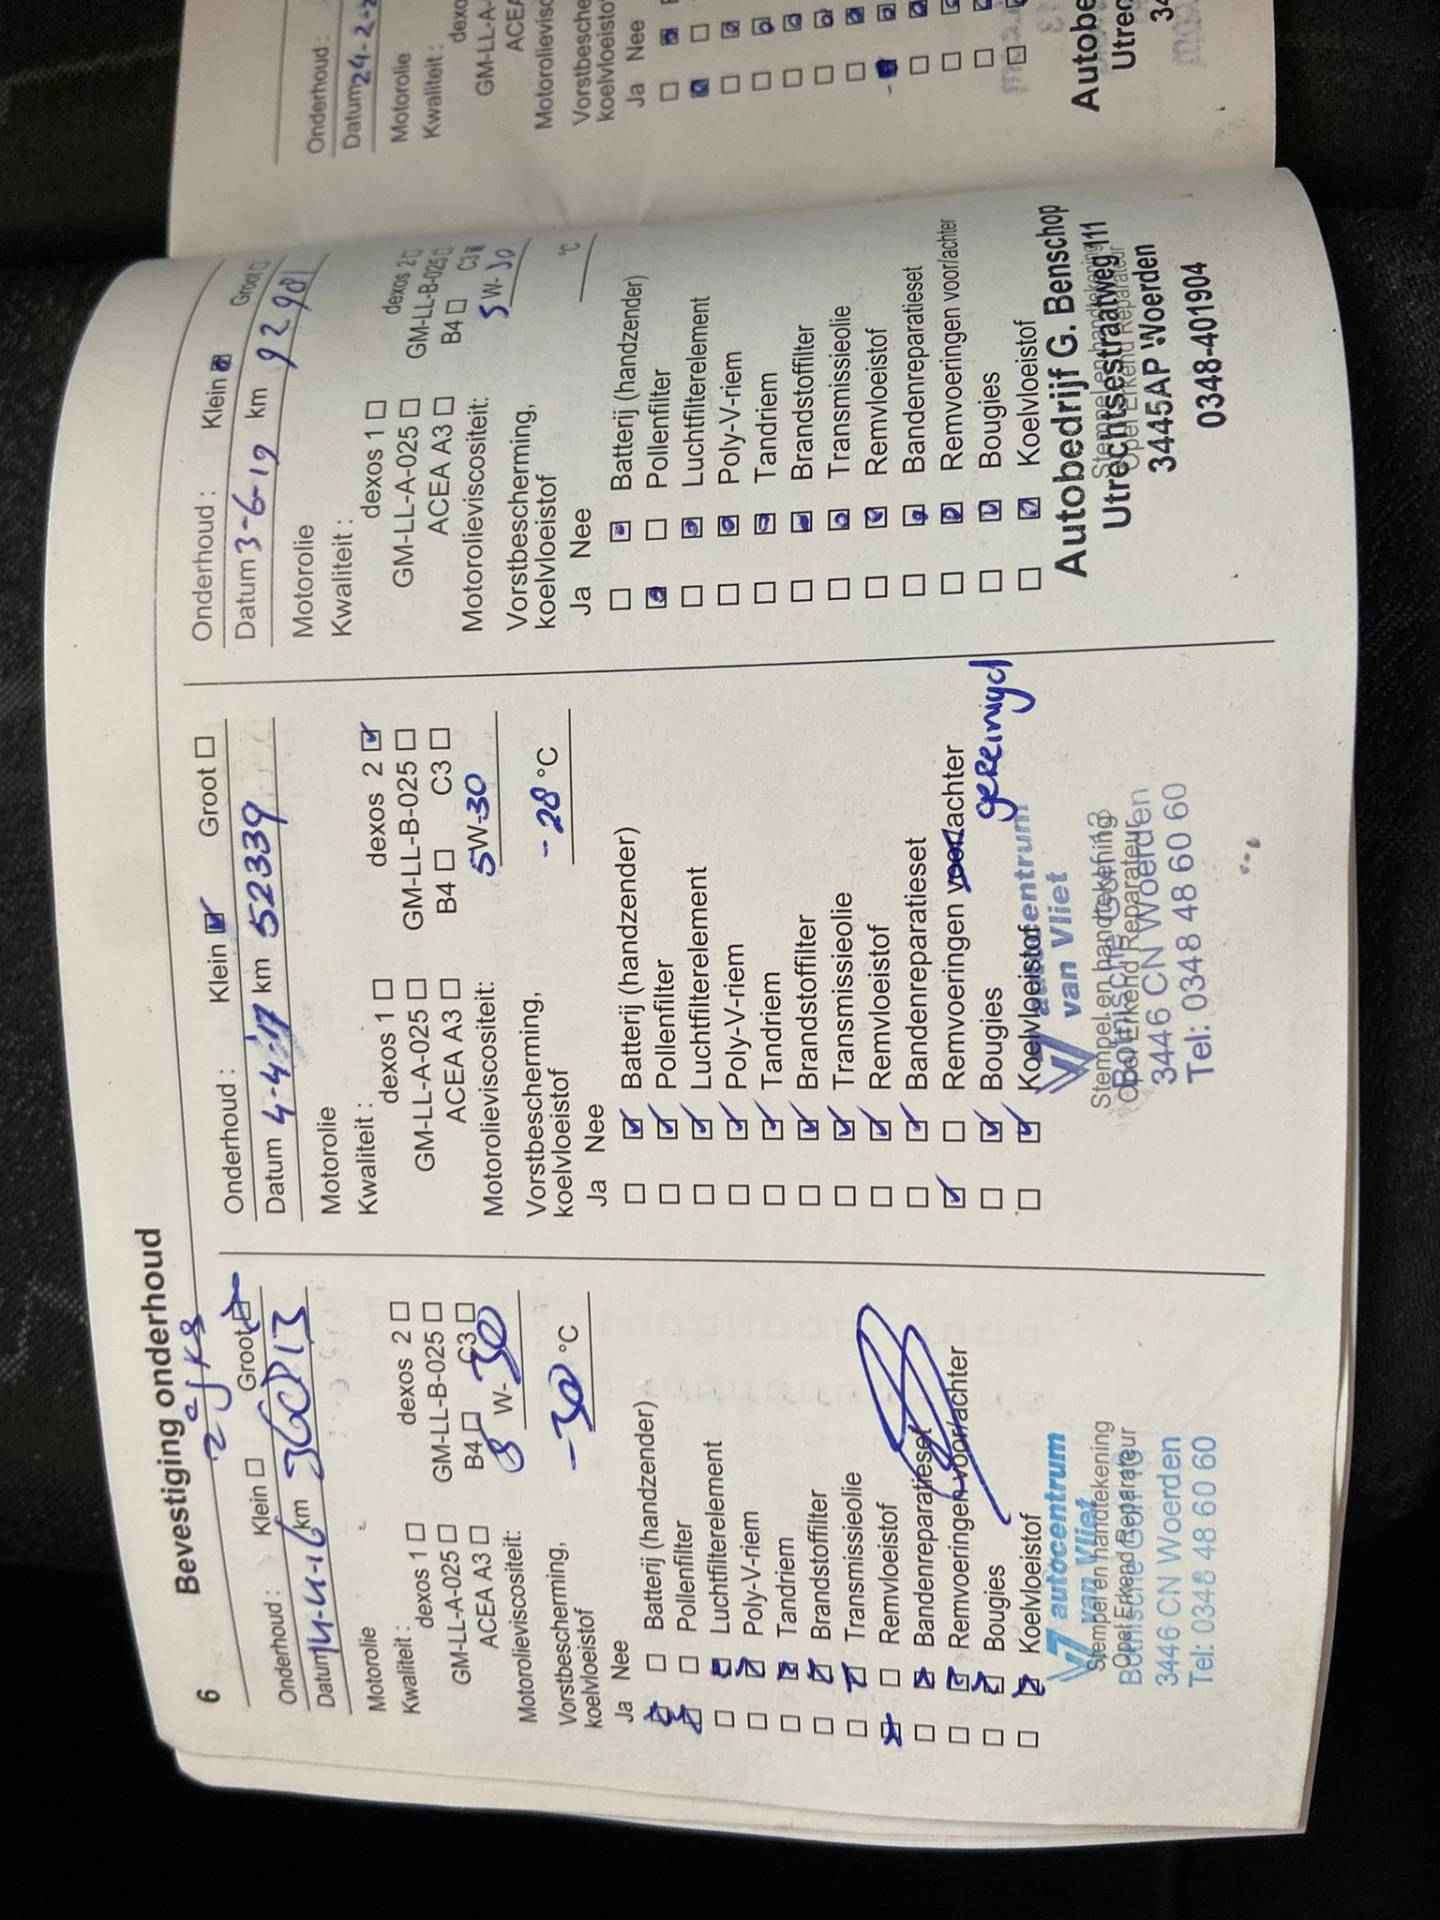 6 Bevestiging onderhoud
2e jks
Onderhoud : Klein Groot
Datum km 36013
Motorolie
Kwaliteit :
dexos 1 dexos 2
GM-LL-A-025 GM-LL-B-025
ACEA A3 B4 C3
Motorolieviscositeit: 5 W-30
Vorstbescherming,
koelvloeistof -30 °C
Ja Nee
Batterij (handzender)
Pollenfilter
Luchtfilterelement
Poly-V-riem
Tandriem
Brandstoffilter
Transmissieolie
Remvloeistof
Bandenreparatieset
Remvoeringen voor/achter
Bougies
Koelvloeistof
autocentrum
van Vliet
Stempel en handtekening
Opel Erkend Reparateur
3446 CN Woerden
Tel: 0348 48 60 60
Onderhoud : Klein Groot
Datum 4-4-'17 km 52339
Motorolie
Kwaliteit :
dexos 1 dexos 2
GM-LL-A-025 GM-LL-B-025
ACEA A3 B4 C3
Motorolieviscositeit: 5W-30
Vorstbescherming,
koelvloeistof -28 °C
Ja Nee
Batterij (handzender)
Pollenfilter
Luchtfilterelement
Poly-V-riem
Tandriem
Brandstoffilter
Transmissieolie
Remvloeistof
Bandenreparatieset
Remvoeringen voor/achter
gereinigd
Bougies
Koelvloeistof
autocentrum
van Vliet
Stempel en handtekening
Opel Erkend Reparateur
3446 CN Woerden
Tel: 0348 48 60 60
Onderhoud : Klein Groot
Datum 3-6-19 km 92901
Motorolie
Kwaliteit :
dexos 1 dexos 2
GM-LL-A-025 GM-LL-B-025
ACEA A3 B4 C3
Motorolieviscositeit: 5W-30
Vorstbescherming,
koelvloeistof °C
Ja Nee
Batterij (handzender)
Pollenfilter
Luchtfilterelement
Poly-V-riem
Tandriem
Brandstoffilter
Transmissieolie
Remvloeistof
Bandenreparatieset
Remvoeringen voor/achter
Bougies
Koelvloeistof
Autobedrijf G. Benschop
Stempel en handtekening
Utrechtsestraatweg 111
Opel Erkend Reparateur
3445AP Woerden
0348-401904
Onderhoud :
Datum 24-2-2
Motorolie
Kwaliteit :
dexo
GM-LL-A-
ACEA
Motorolievisco
Vorstbesche
koelvloeisto
Ja Nee
Autobe
Utrec
34